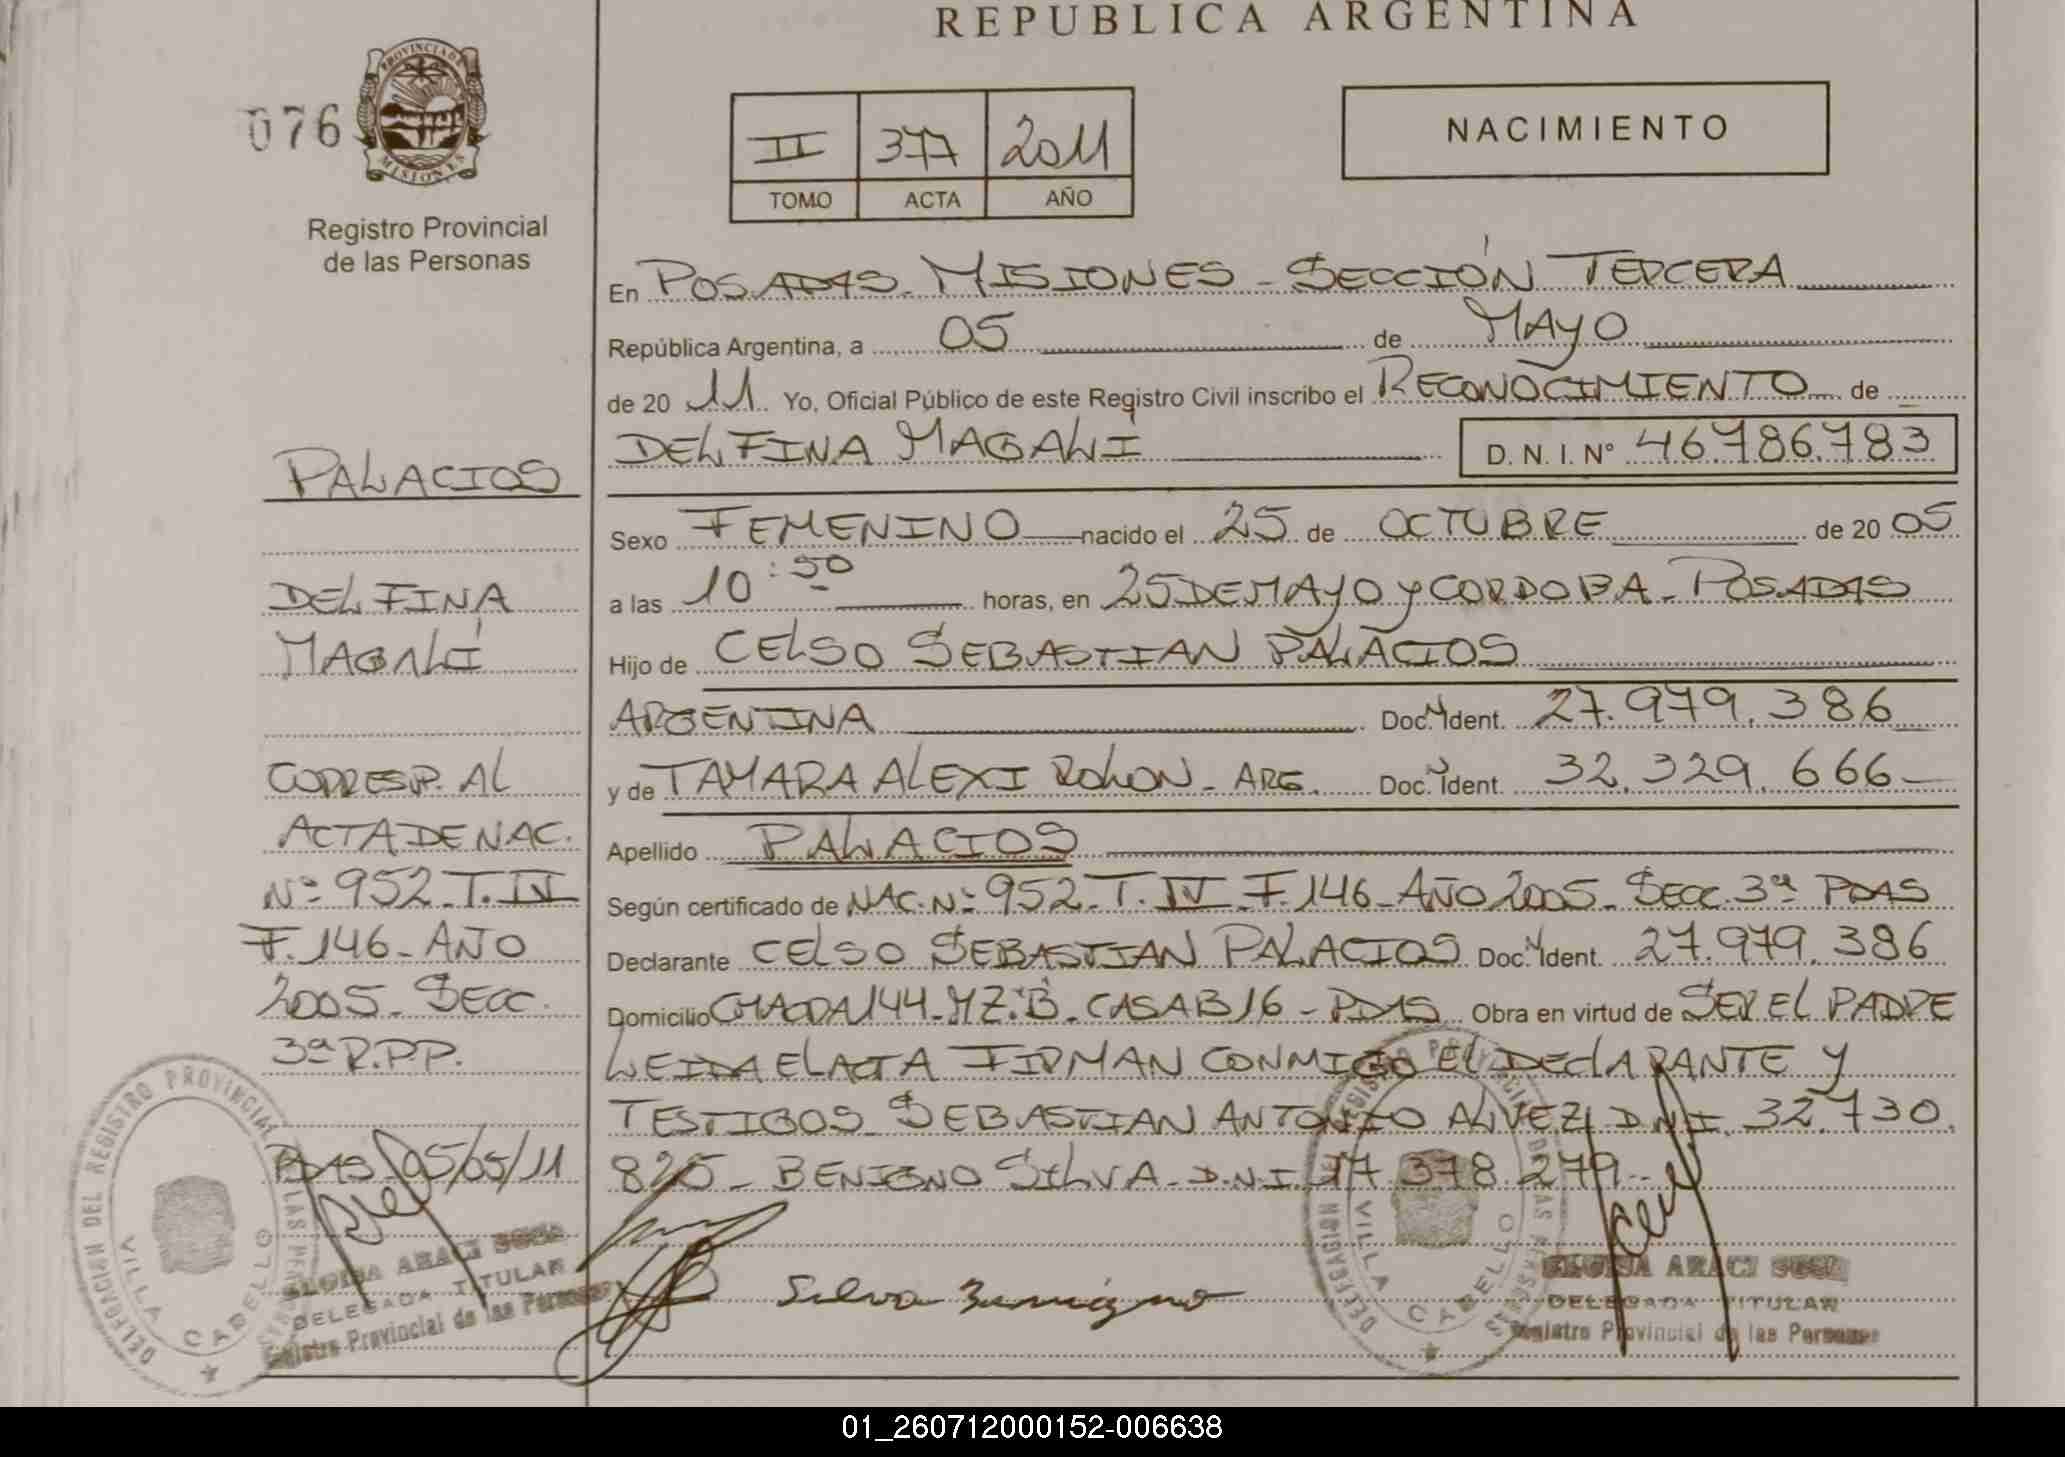 REPUBLICA ARGENTINA
076
PROVINCIA DE
MISIONES
Registro Provincial
de las Personas
II 377 2011
TOMO ACTA AÑO
NACIMIENTO
En POSADAS - MISIONES - SECCIÓN TERCERA
República Argentina, a 05 de MAYO
de 20 11 Yo, Oficial Público de este Registro Civil inscribo el RECONOCIMIENTO de
DELFINA MAGALÍ D. N. I. Nº 46.786.783
Sexo FEMENINO nacido el 25 de OCTUBRE de 20 05
a las 10:50 horas, en 25 DE MAYO y CORDOBA - POSADAS
Hijo de CELSO SEBASTIAN PALACIOS
ARGENTINA Doc. Ident. 27.979.386
y de TAMARA ALEXI ROLON - ARG. Doc. Ident. 32.329.666
Apellido PALACIOS
Según certificado de NAC. Nº 952 - T. IV - F. 146 - AÑO 2005 - SECC. 3ª PDAS
Declarante CELSO SEBASTIAN PALACIOS Doc. Ident. 27.979.386
Domicilio CHACRA 144 - MZ. B - CASA B 16 - PDAS Obra en virtud de SER EL PADRE
LEIDA EL ACTA FIRMAN CONMIGO EL DECLARANTE Y
TESTIGOS SEBASTIAN ANTONIO ALVEZ D.N.I. 32.730.
825 - BENIGNO SILVA - D.N.I. 17.378.279 -
PALACIOS
DELFINA
MAGALÍ
CORRESP. AL
ACTA DE NAC.
Nº 952 - T. IV
F. 146 - AÑO
2005 - SECC.
3ª R.P.P.
PDAS 05/05/11
DELEGACION DEL REGISTRO PROVINCIAL DE LAS PERSONAS
VILLA CABELLO
ELOISA ARACI SOSA
DELEGADA TITULAR
Registro Provincial de las Personas
Silva Benigno
DELEGACION DEL REGISTRO PROVINCIAL DE LAS PERSONAS
VILLA CABELLO
ELOISA ARACI SOSA
DELEGADA TITULAR
Registro Provincial de las Personas
01_260712000152-006638